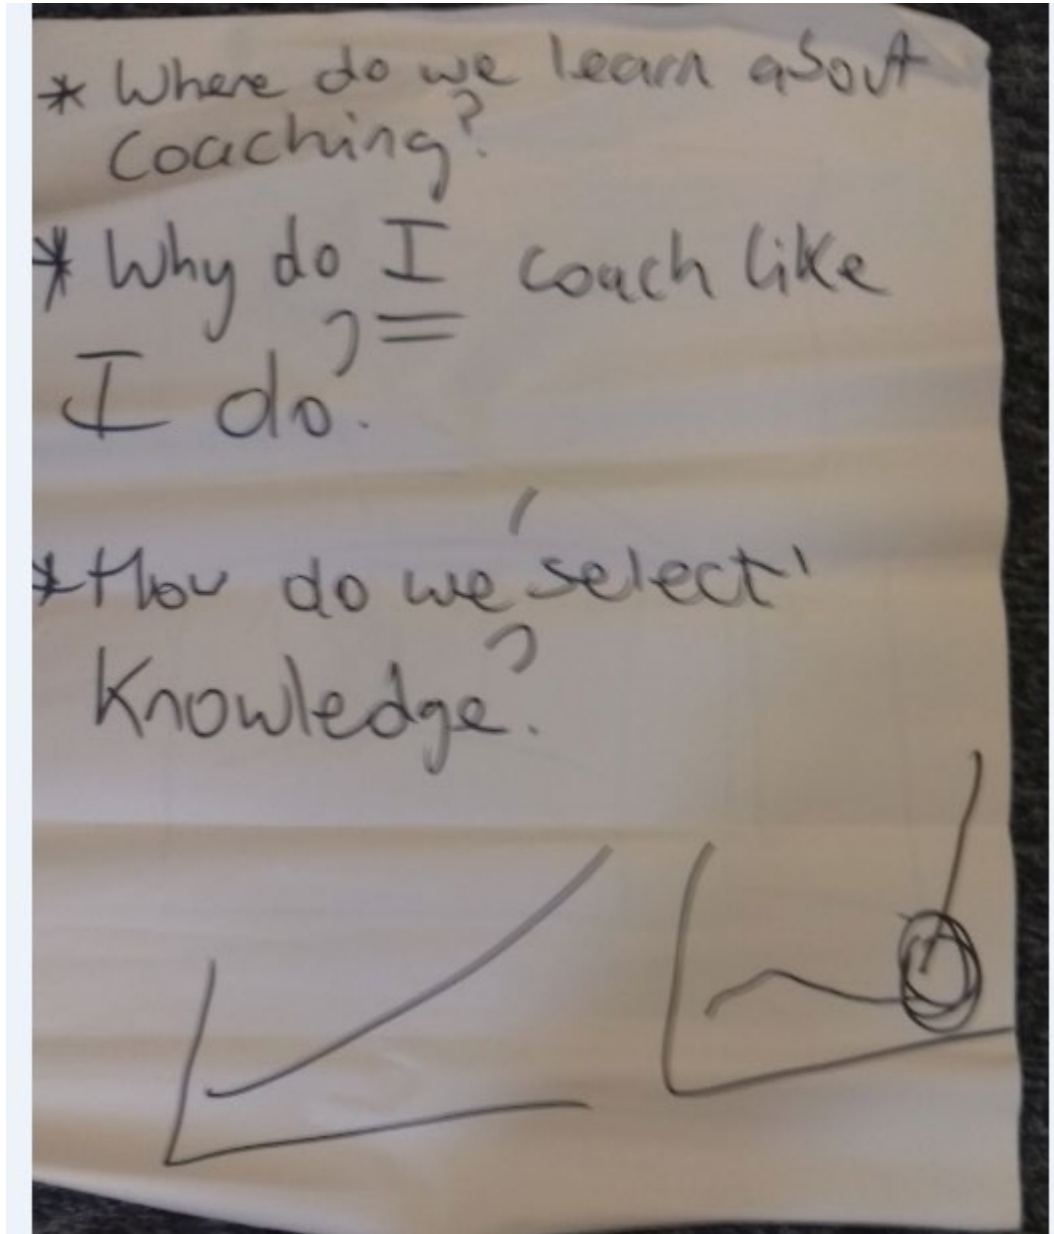 * Where do we learn about
coaching?
* Why do I coach like
I do?
* How do we 'select'
Knowledge?